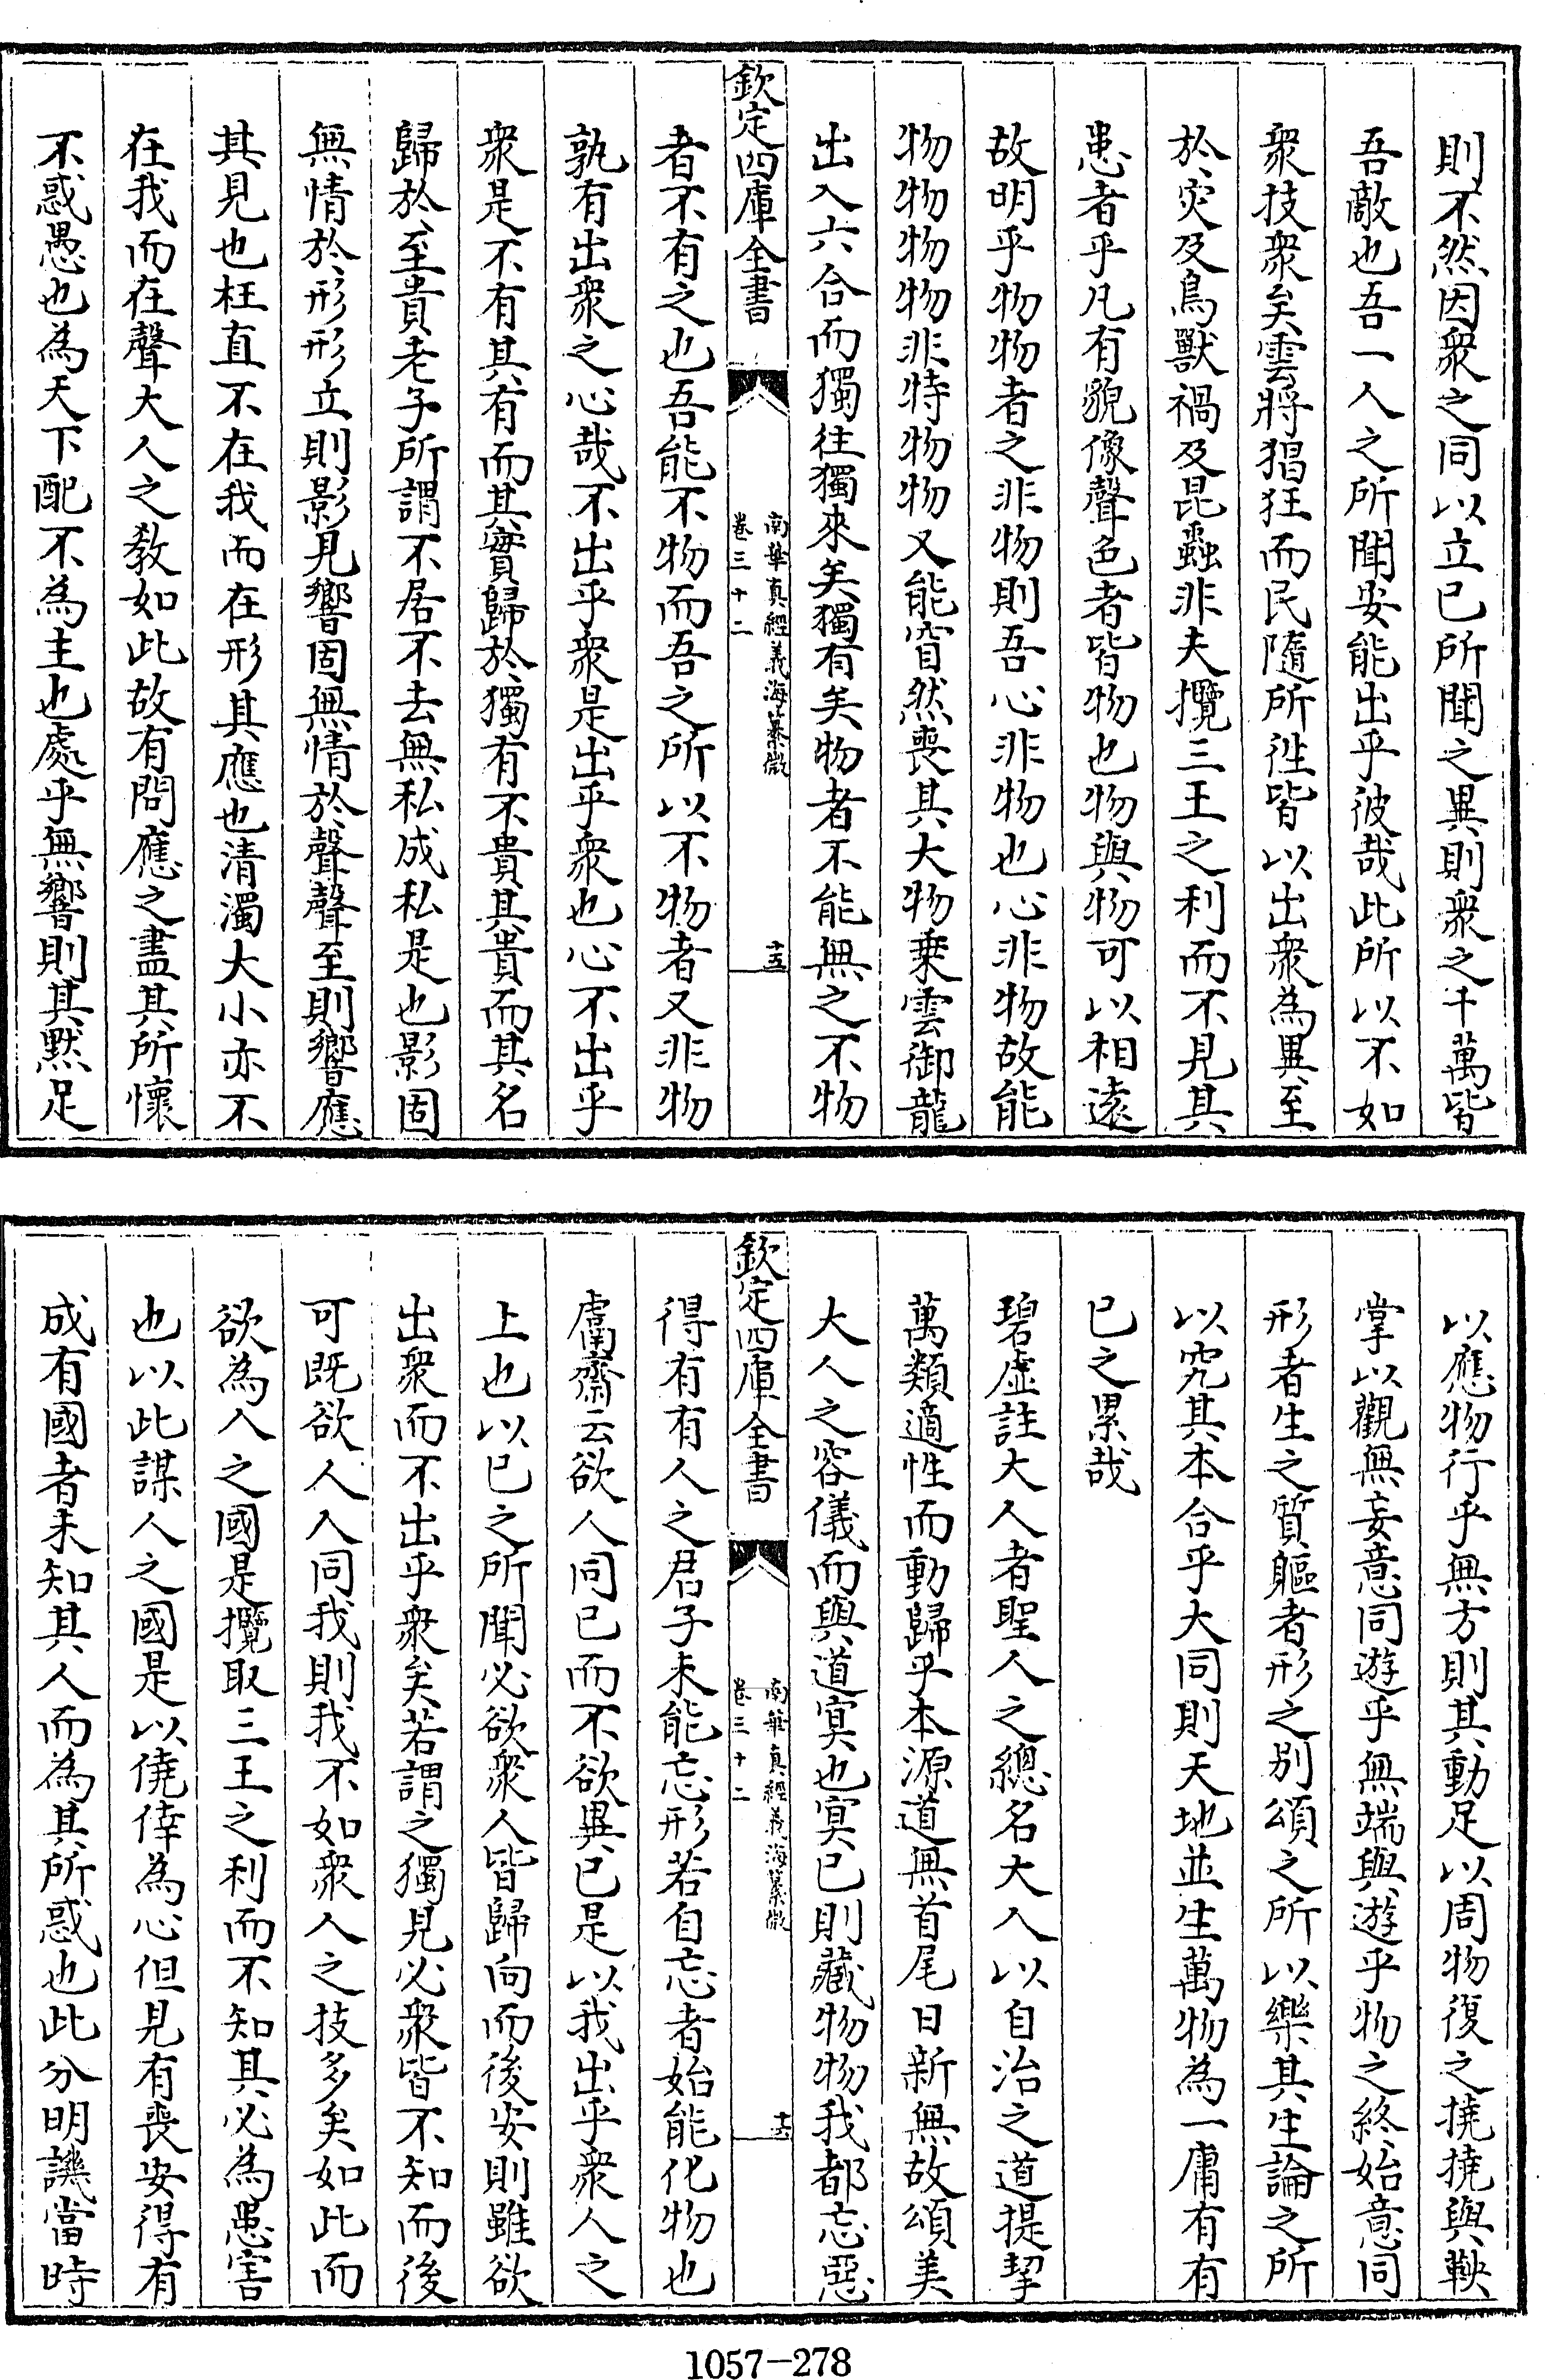 則不然因衆之同以立已所聞之異則衆之千萬皆
吾敵也吾一人之所聞安能出乎彼哉此所以不如
衆技衆矣雲將猖狂而民隨所徃皆以出衆為異至
於灾及鳥獸禍及昆蟲非夫攬三王之利而不見其
患者乎凡有貌像聲色者皆物也物與物可以相逺
故明乎物物者之非物則吾心非物也心非物故能
物物物物非特物物又能窅然喪其大物乗雲御龍
出入六合而獨往獨來矣獨有矣物者不能無之不物
欽定四庫全書
南華真經義海纂微
卷三十二
十五
者不有之也吾能不物而吾之所以不物者又非物
孰有出衆之心哉不出乎衆是出乎衆也心不出乎
衆是不有其有而其實歸於獨有不貴其貴而其名
歸於至貴老子所謂不居不去無私成私是也影固
無情於形形立則影見響固無情於聲聲至則響應
其見也枉直不在我而在形其應也清濁大小亦不
在我而在聲大人之教如此故有問應之盡其所懷
不惑愚也為天下配不為主也處乎無響則其黙足
以應物行乎無方則其動足以周物復之撓撓與鞅
掌以觀無妄意同遊乎無端與遊乎物之終始意同
形者生之質軀者形之别頌之所以樂其生論之所
以究其本合乎大同則天地並生萬物為一庸有有
已之累哉
碧虚註大人者聖人之總名大人以自治之道提挈
萬類適性而動歸乎本源道無首尾日新無故頌美
大人之容儀而與道冥也冥已則藏物物我都忘惡
欽定四庫全書
南華真經義海纂微
卷三十二
十六
得有有人之君子未能忘形若自忘者始能化物也
鬳齋云欲人同已而不欲異已是以我出乎衆人之
上也以已之所聞必欲衆人皆歸向而後安則雖欲
出衆而不出乎衆矣若謂之獨見必衆皆不知而後
可既欲人人同我則我不如衆人之技多矣如此而
欲為人之國是攬取三王之利而不知其必為患害
也以此謀人之國是以僥倖為心但見有喪安得有
成有國者未知其人而為其所惑也此分明譏當時
1057-278